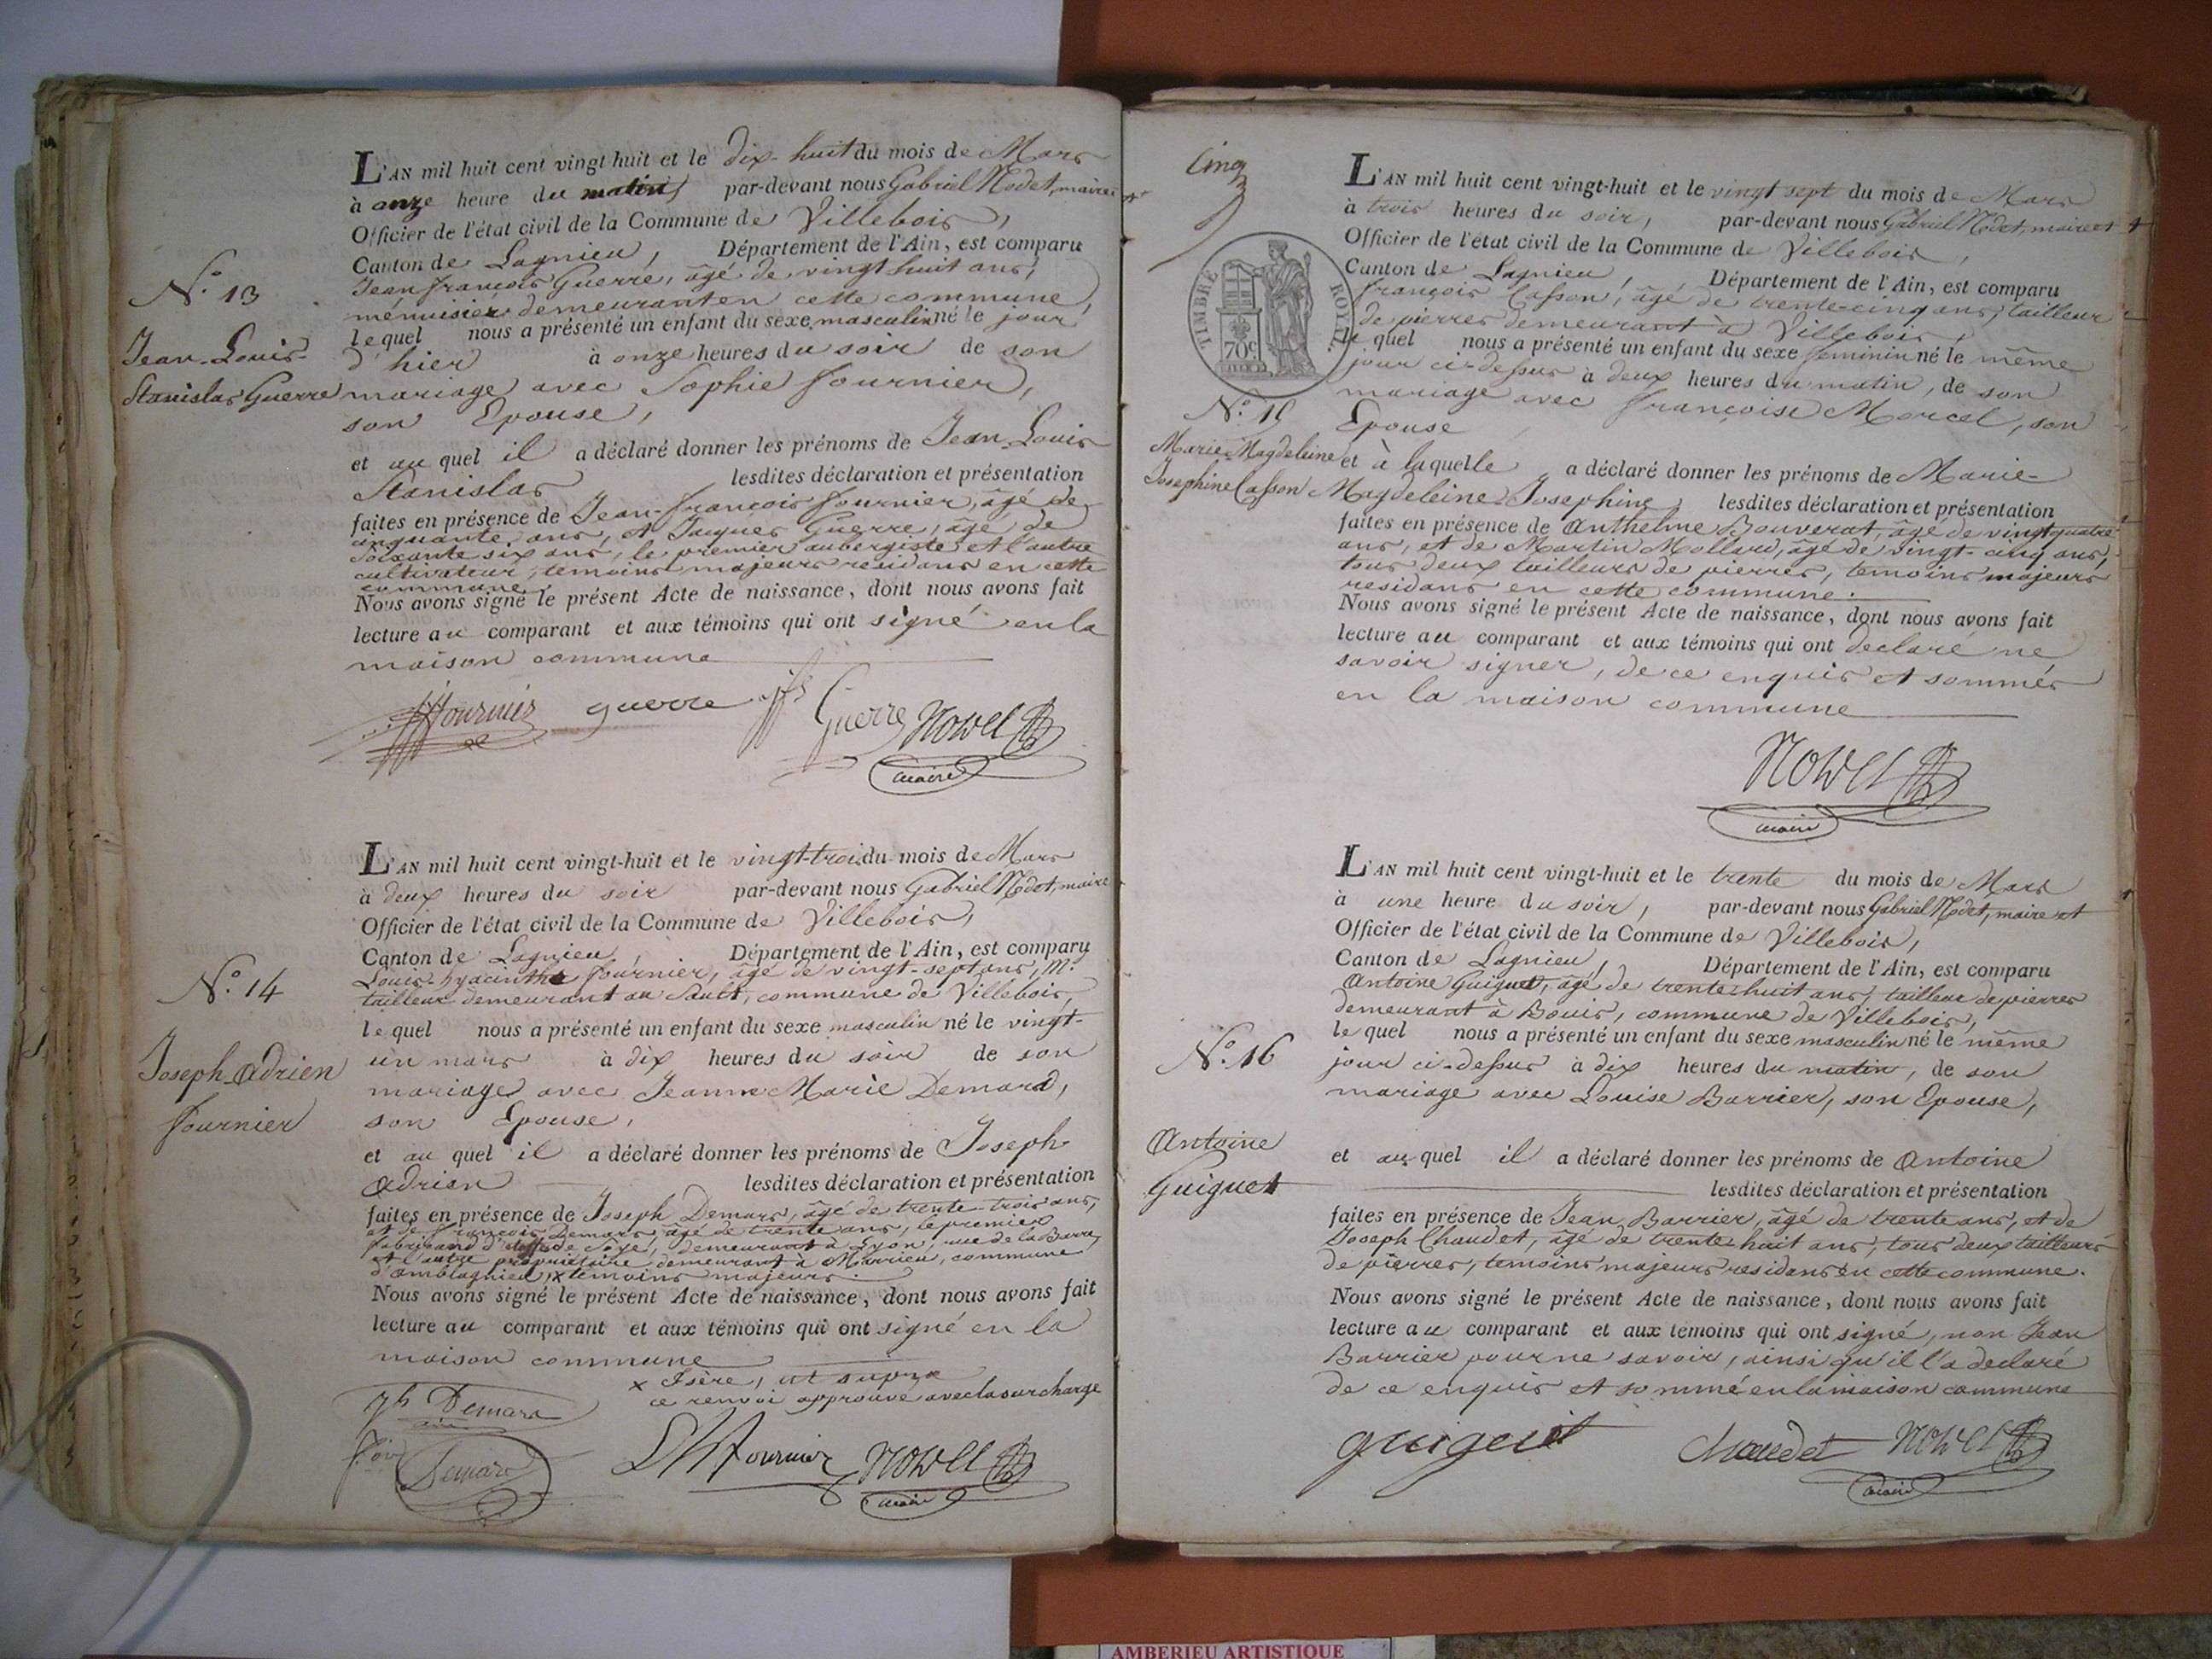 L'AN mil huit cent vingt-huit et le dix-huit du mois de Mars
à onze heure du matin, par-devant nous Gabriel Nodet, maire et
Officier de l'état civil de la Commune de Villebois,
Canton de Lagnieu, Département de l'Ain, est comparu
Jean françois Guerre, âgé de vingt huit ans,
menuisier demeurant en cette commune,
N.° 13
lequel nous a présenté un enfant du sexe masculin né le jour
Jean-Louis-
d'hier à onze heures du soir de son
Stanislas Guerre
mariage avec Sophie fournier,
son Epouse,
et au quel il a déclaré donner les prénoms de Jean-Louis
Stanislas lesdites déclaration et présentation
faites en présence de Jean-françois fournier, âgé de
cinquante ans, et Jacques Guerre, âgé de
soixante six ans, le premier aubergiste et l'autre
cultivateur, temoins majeurs residans en cette
commune
Nous avons signé le présent Acte de naissance, dont nous avons fait
lecture au comparant et aux témoins qui ont signé en la
maison commune
fournier guerre Guerre Nodet
maire
L'AN mil huit cent vingt-huit et le vingt-trois du mois de Mars
à deux heures du soir par-devant nous Gabriel Nodet, maire
Officier de l'état civil de la Commune de Villebois,
Canton de Lagnieu, Département de l'Ain, est comparu
Louis-hyacinthe fournier, âgé de vingt-sept ans, M.e
tailleur demeurant au Sault, commune de Villebois,
N.° 14
lequel nous a présenté un enfant du sexe masculin né le vingt-
un mars à dix heures du soir de son
Joseph Adrien
mariage avec Jeanne Marie Demard,
fournier
son Epouse,
et au quel il a déclaré donner les prénoms de Joseph
Adrien lesdites déclaration et présentation
faites en présence de Joseph Demars, âgé de trente-trois ans,
et de françois Demars âgé de trente ans, le premier
fabricand d'étoffe de soye, demeurant à Lyon, rue de la Barre,
et l'autre propriétaire demeurant à Marieu, commune
d'amblagnieu, x temoins majeurs.
Nous avons signé le présent Acte de naissance, dont nous avons fait
lecture au comparant et aux témoins qui ont signé en la
maison commune
x Isère, ut supra
ce renvoi approuvé avec la surcharge
Jh Demard
Demard LH fournier Nodet
maire
Cinq
TIMBRE ROYAL
70c
L'AN mil huit cent vingt-huit et le vingt sept du mois de Mars
à trois heures du soir, par-devant nous Gabriel Nodet, maire et
Officier de l'état civil de la Commune de Villebois,
Canton de Lagnieu, Département de l'Ain, est comparu
françois Casson, âgé de trente-cinq ans, tailleur
de pierres demeurant à Villebois,
le quel nous a présenté un enfant du sexe feminin né le même
jour ci-dessus à deux heures du matin, de son
mariage avec françoise Marcel, son
N.° 15
Epouse
Marie-Magdeleine
Josephine Casson
et à laquelle a déclaré donner les prénoms de Marie-
Magdeleine-Josephine lesdites déclaration et présentation
faites en présence de Anthelme Bouverat, âgé de vingt quatre
ans, et de Martin Mollard, âgé de vingt-cinq ans,
tous deux tailleurs de pierres, temoins majeurs
residans en cette commune.
Nous avons signé le présent Acte de naissance, dont nous avons fait
lecture au comparant et aux témoins qui ont declaré ne
savoir signer, de ce enquis et sommés
en la maison commune
Nodet
maire
L'AN mil huit cent vingt-huit et le trente du mois de Mars
à une heure du soir, par-devant nous Gabriel Nodet, maire et
Officier de l'état civil de la Commune de Villebois,
Canton de Lagnieu, Département de l'Ain, est comparu
Antoine Guiguet, âgé de trente-huit ans, tailleur de pierres
demeurant à Bouis, commune de Villebois,
le quel nous a présenté un enfant du sexe masculin né le même
N.° 16
jour ci-dessus à dix heures du matin, de son
mariage avec Louise Barrier, son Epouse,
Antoine
Guiguet
et au quel il a déclaré donner les prénoms de Antoine
lesdites déclaration et présentation
faites en présence de Jean Barrier, âgé de trente ans, et de
Joseph Chaudet, âgé de trente-huit ans, tous deux tailleurs
de pierres, temoins majeurs residans en cette commune.
Nous avons signé le présent Acte de naissance, dont nous avons fait
lecture au comparant et aux témoins qui ont signé, non Jean
Barrier pour ne savoir, ainsi qu'il l'a declaré
de ce enquis et sommé en la maison commune
guiguet chaudet Nodet
maire
AMBERIEU ARTISTIQUE